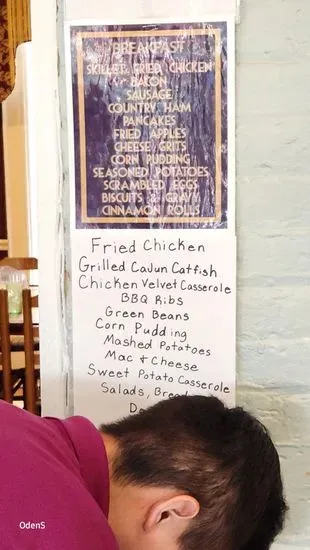 BREAKFAST
SKILLET FRIED CHICKEN
BACON
SAUSAGE
COUNTRY HAM
PANCAKES
FRIED APPLES
CHEESE GRITS
CORN PUDDING
SEASONED POTATOES
SCRAMBLED EGGS
BISCUITS & GRAVY
CINNAMON ROLLS
Fried Chicken
Grilled Cajun Catfish
Chicken Velvet Casserole
BBQ Ribs
Green Beans
Corn Pudding
Mashed Potatoes
Mac & Cheese
Sweet Potato Casserole
Salads,
OdenS